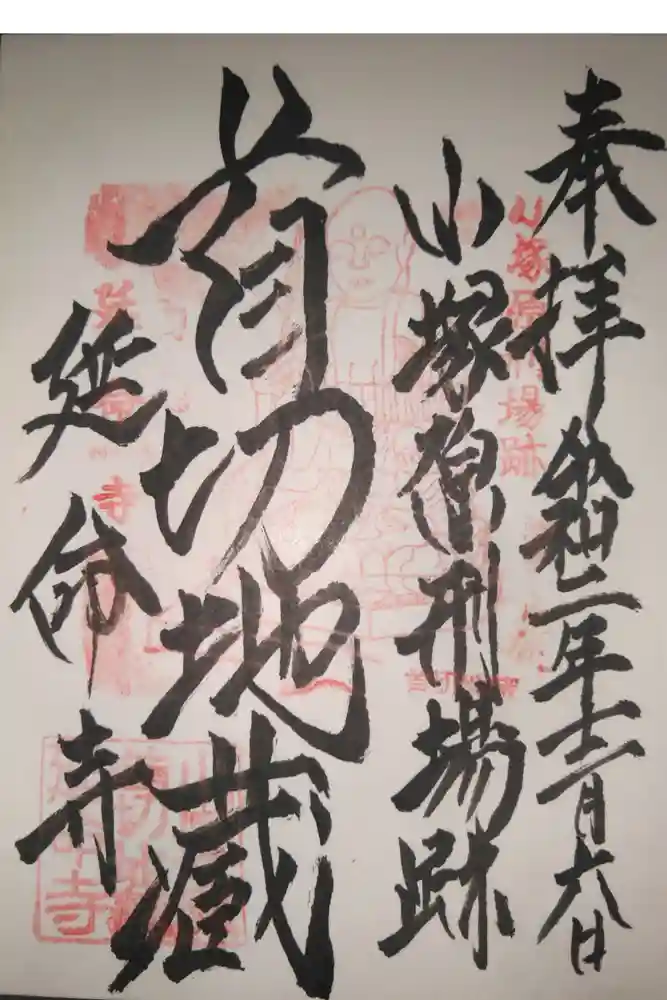 奉拝 令和二年十二月六日
小塚原刑場跡
首切地蔵
延命寺
小塚原刑場跡
延命寺